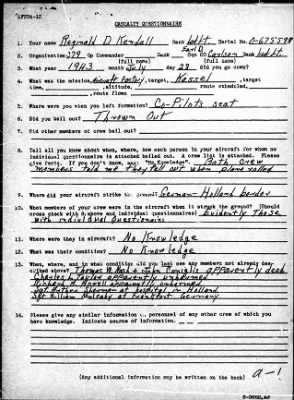 CASUALTY QUESTIONNAIRE
1. Your name Reginald D. Kendall Rank 2nd Lt. Serial No. O-675598
2. Organization 379 Gp Commander Rank Sqn CO Carlson Rank
(full name) (full name)
3. What year 1943 month July day 28 did you go down?
4. What was the mission, , target, Kassel, target
time , altitude, route scheduled,
, route flown
5. Where were you when you left formation? Co-Pilots seat
6. Did you bail out? Thrown Out
7. Did other members of crew bail out?
8. Tell all you know about when, where, how each person in your aircraft for whom no
individual questionnaire is attached bailed out. A crew list is attached. Please
give facts. If you don't know, say: "No Knowledge". Both Crew
members told me they fell out when plane rolled
9. Where did your aircraft strike the ground? German-Holland border
10. What members of your crew were in the aircraft when it struck the ground? (Should
cross check with 8 above and individual questionnaires) Evidently Those
with individual Questionairs
11. Where were they in aircraft? No Knowledge
12. What was their condition? No Knowledge
13. When, where, and in what condition did you last see any members not already des-
cribed above? Thomas apparently dead
Charles L. Taylor apparently unharmed
Richard M. apparently unharmed
Sgt. Sherman at hospital in Holland
Sgt William Mulcahy at Frankfurt Germany
14. Please give any similar information on personnel of any other crew of which you
have knowledge. Indicate source of information.
a-1
(Any additional information may be written on the back)